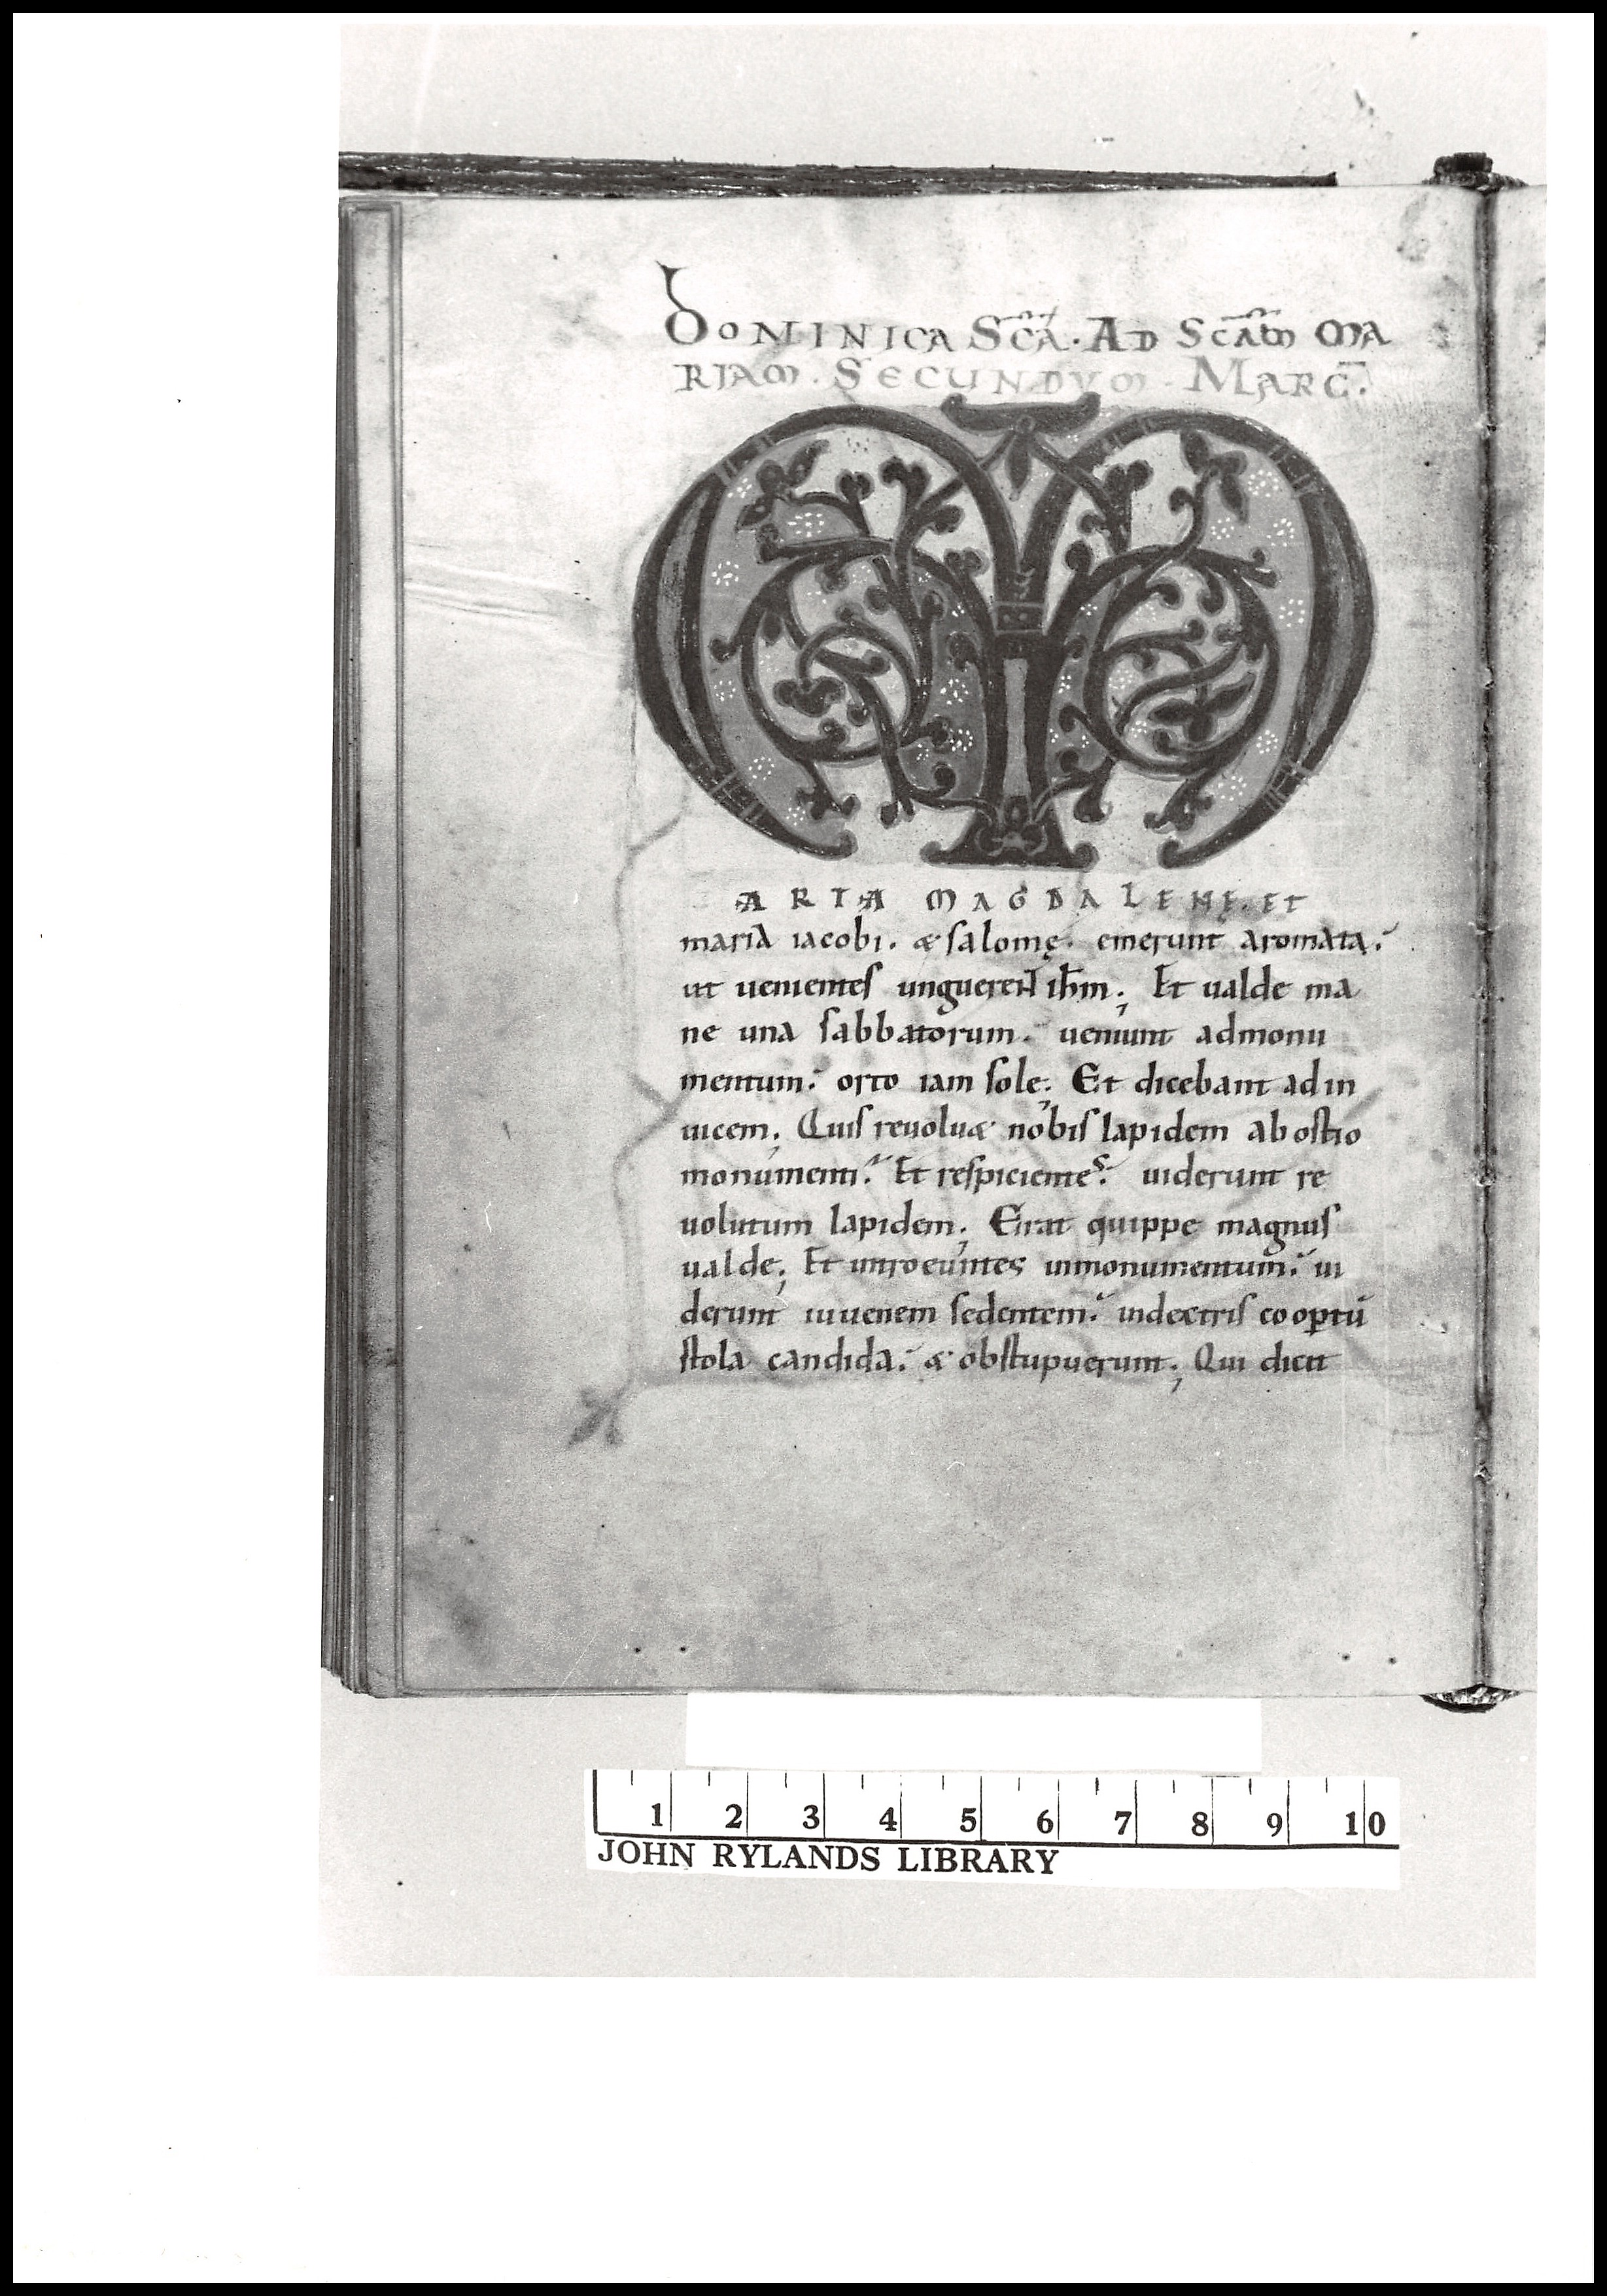 DOMINICA SCA̅. AD SCAM̅ MA
RIAM. SECUNDUM. MARC̅.
M
ARIA MAGDALENĘ. ET
maria iacobi. & salomę. emerunt aromata.
ut uenientes unguerent ihm̅; Et ualde ma
ne una sabbatorum. ueniunt admonu
mentum. orto iam sole; Et dicebant adin
uicem; Quis reuolu& nobis lapidem ab ostio
monumenti. Et respicientes. uiderunt re
uolutum lapidem; Erat quippe magnus
ualde; Et introeuntes inmonumentum. ui
derunt iuuenem sedentem. indextris coop̱tū
stola candida. & obstupuerunt; Qui dicit
1 2 3 4 5 6 7 8 9 10
JOHN RYLANDS LIBRARY